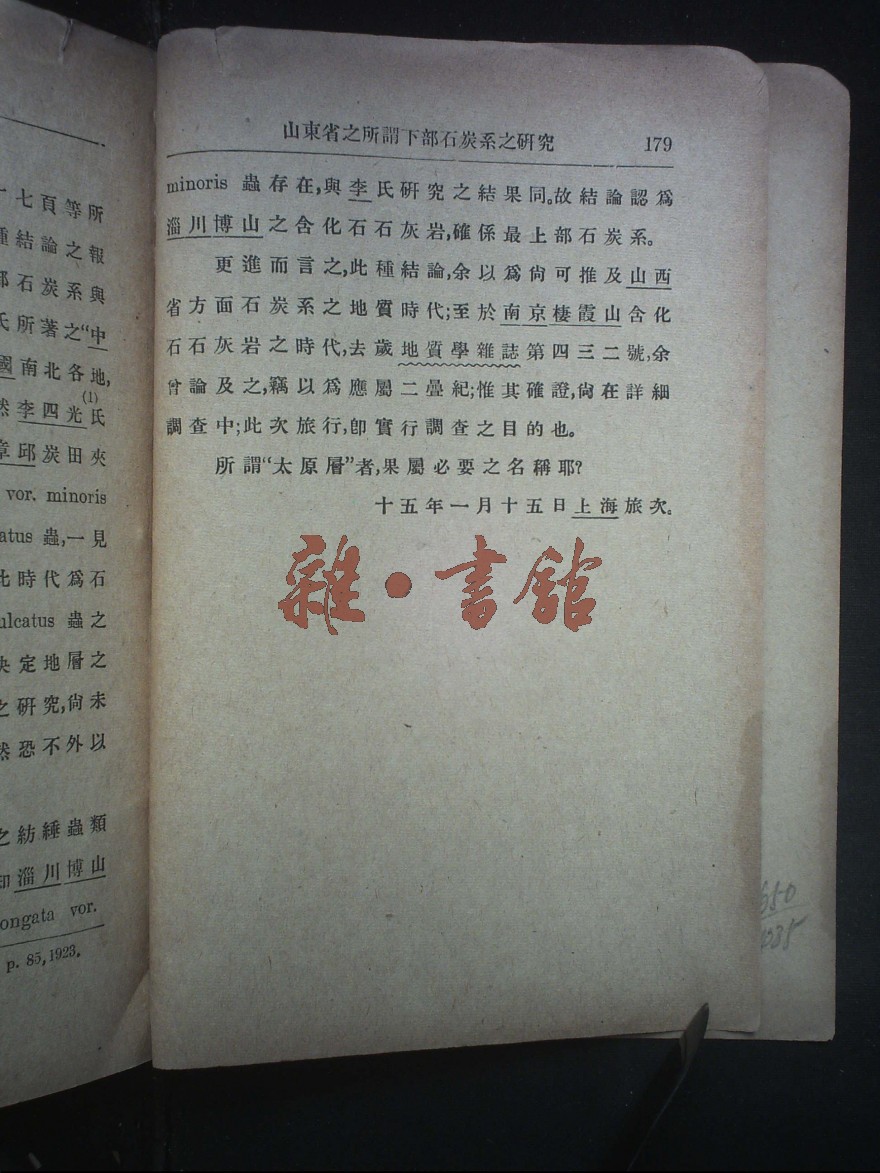 七頁等所
種結論之報
部石炭系與
氏所著之“中
國南北各地,
然李四光氏(1)
章邱炭田夾
vor. minoris
atus 蟲,一見
比時代爲石
ulcatus 蟲之
決定地層之
之研究,尙未
然恐不外以
之紡綞蟲類
卽淄川博山
ongata vor.
p. 85, 1923.
山東省之所謂下部石炭系之硏究 179
minoris 蟲存在,與李氏硏究之結果同。故結論認爲
淄川博山之含化石石灰岩,確係最上部石炭系。
更進而言之,此種結論,余以爲尙可推及山西
省方面石炭系之地質時代;至於南京棲霞山含化
石石灰岩之時代,去歲地質學雜誌第四三二號,余
曾論及之,竊以爲應屬二疊紀;惟其確證,尙在詳細
調查中;此次旅行,卽實行調查之目的也。
所謂“太原層”者,果屬必要之名稱耶?
十五年一月十五日上海旅次。
雜·書館
650